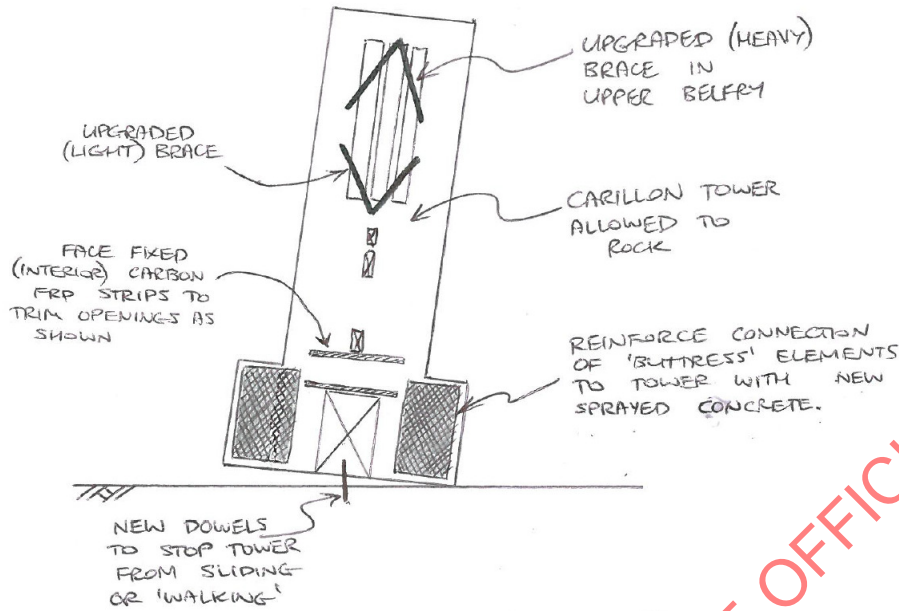 UPGRADED (HEAVY)
BRACE IN
UPPER BELFRY
UPGRADED
(LIGHT) BRACE
CARILLON TOWER
ALLOWED TO
ROCK
FACE FIXED
(INTERIOR) CARBON
FRP STRIPS TO
TRIM OPENINGS AS
SHOWN
REINFORCE CONNECTION
OF 'BUTTRESS' ELEMENTS
TO TOWER WITH NEW
SPRAYED CONCRETE.
NEW DOWELS
TO STOP TOWER
FROM SLIDING
OR 'WALKING'